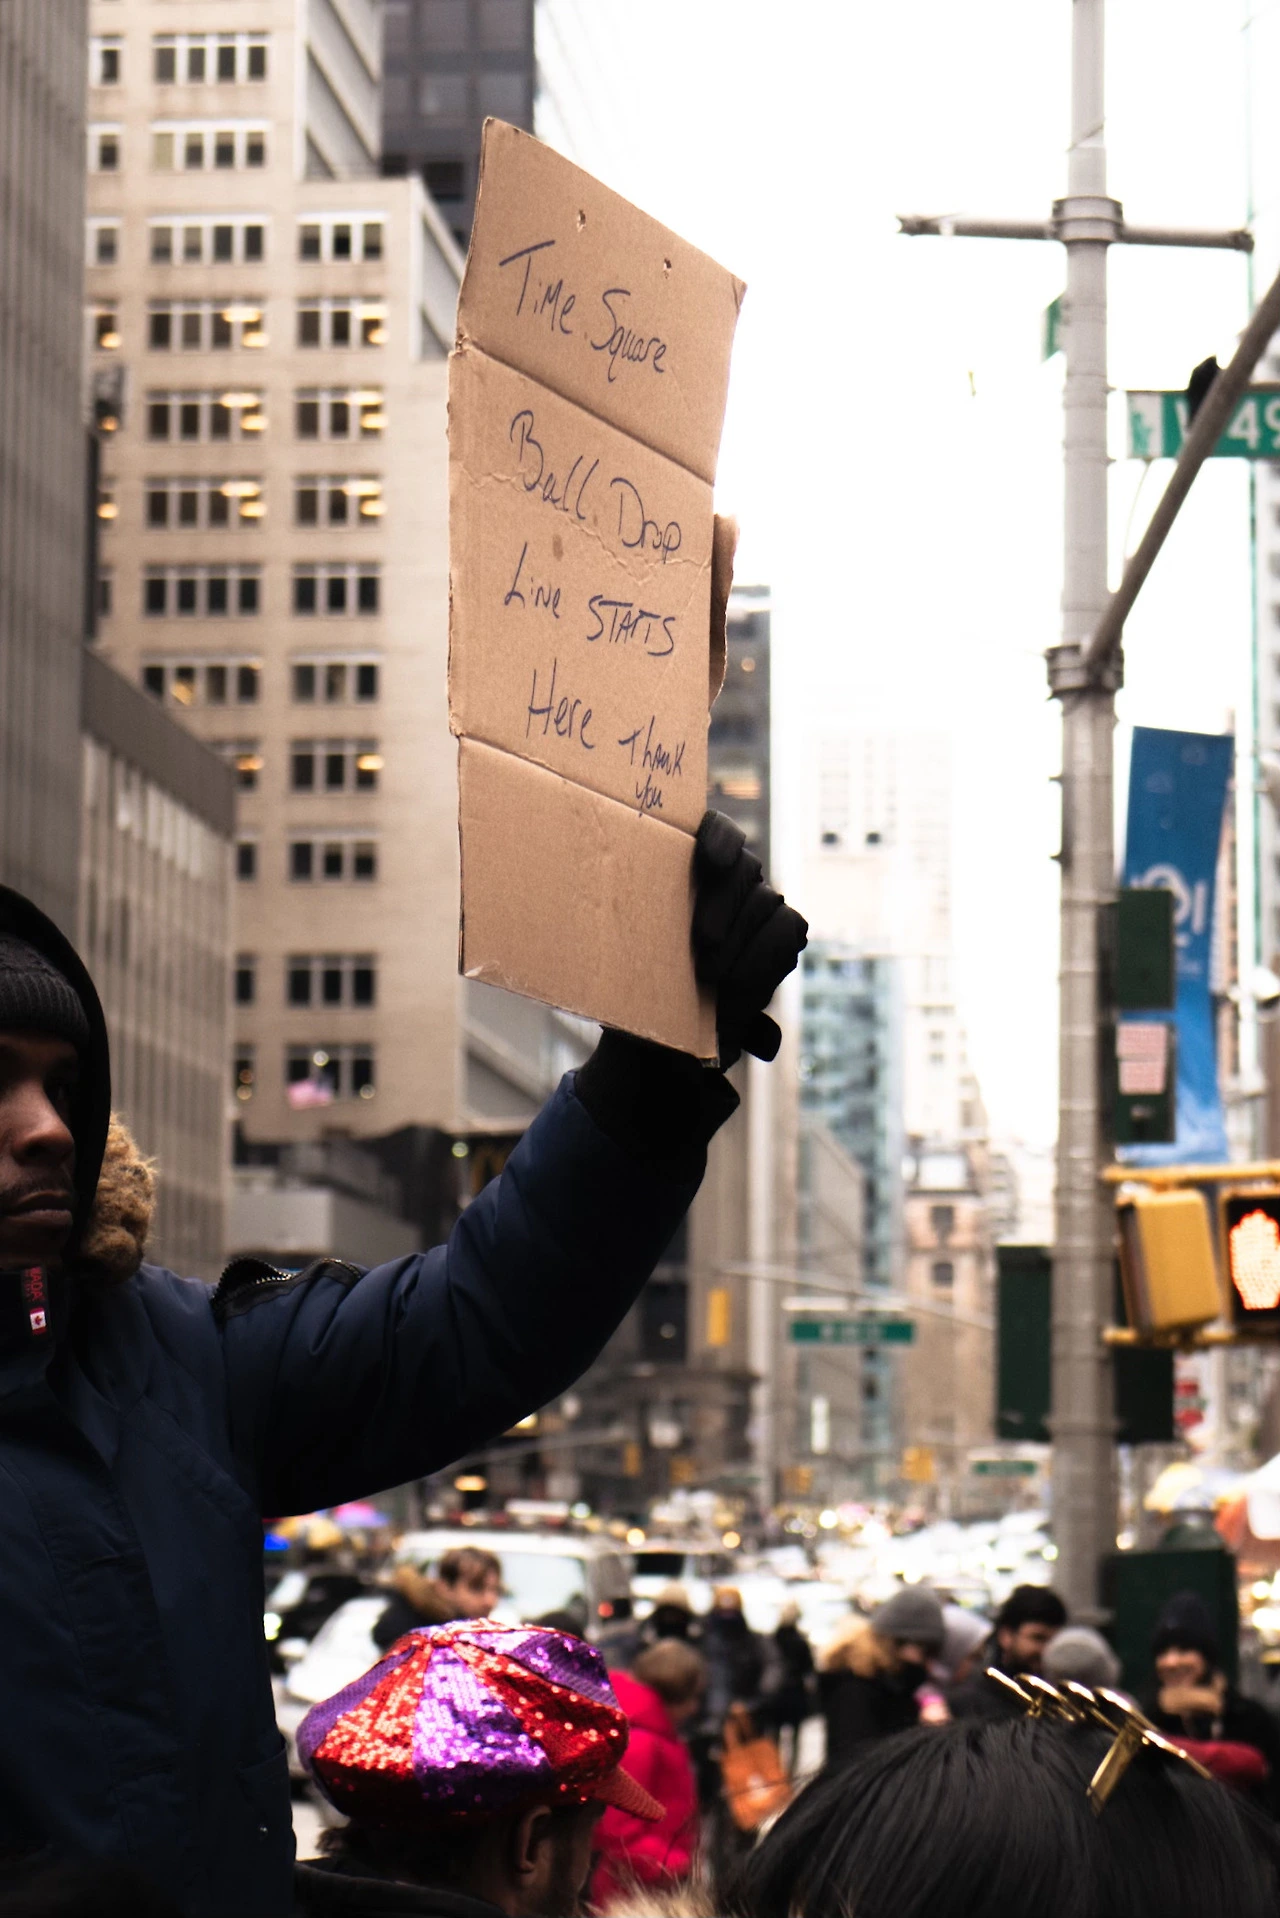 Time Square
Ball Drop
Line STARTS
Here Thank
you
W 49